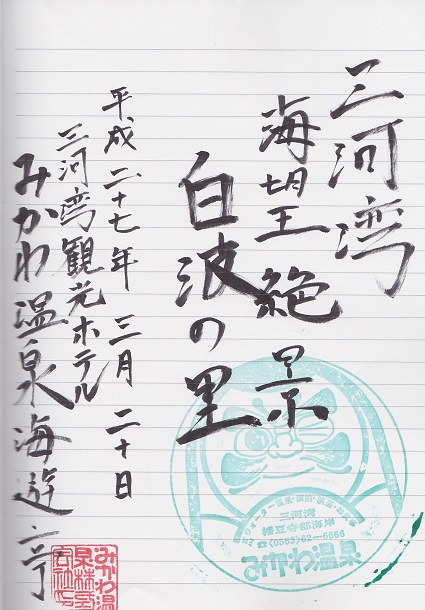 三河湾
海望絶景
白波の里
平成二十七年三月二十日
三河湾観光ホテル
みかわ温泉海遊亭
三河湾
幡豆寺部海岸
☎(0563)62-5666
みかわ温泉